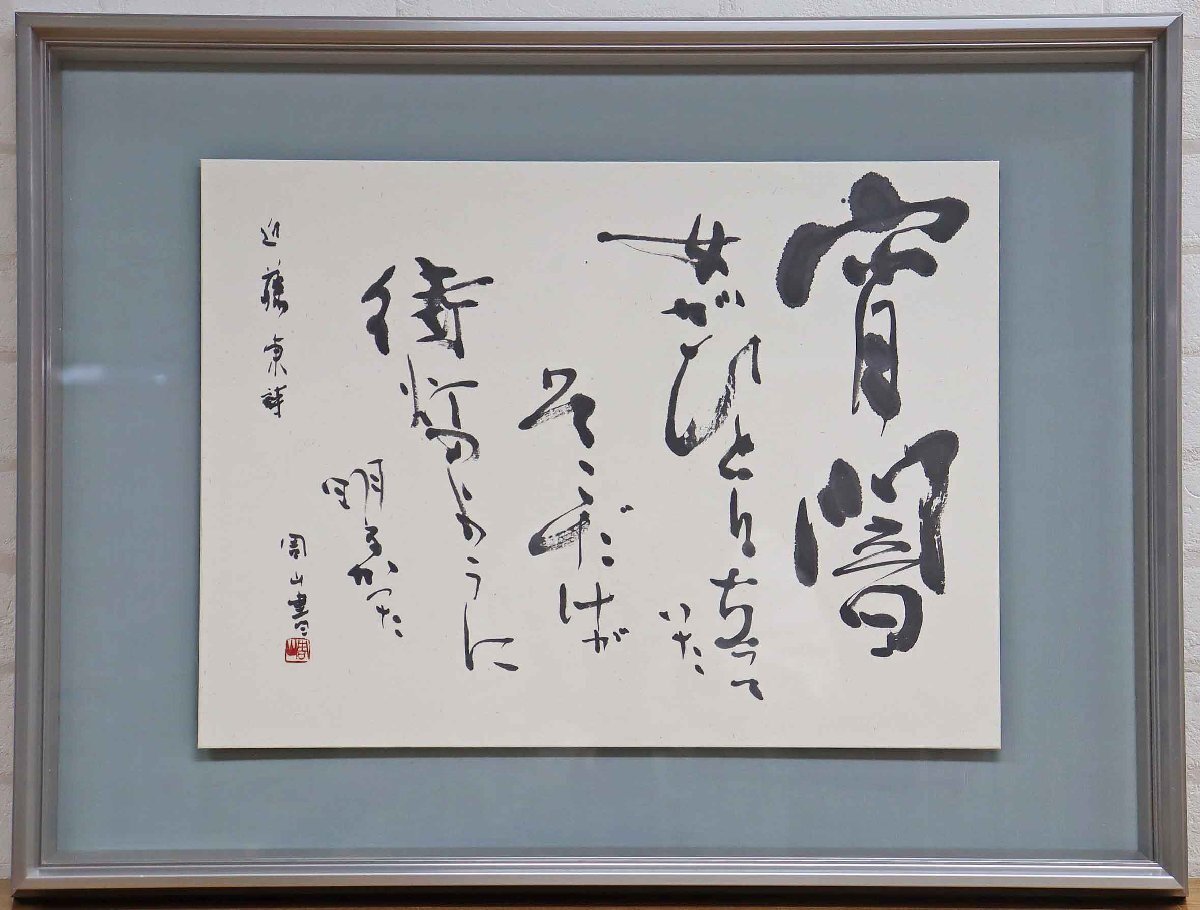 宵闇
女がひとり立って
いた
そこだけが
街灯のように
明るかった
近藤東詩
周山書